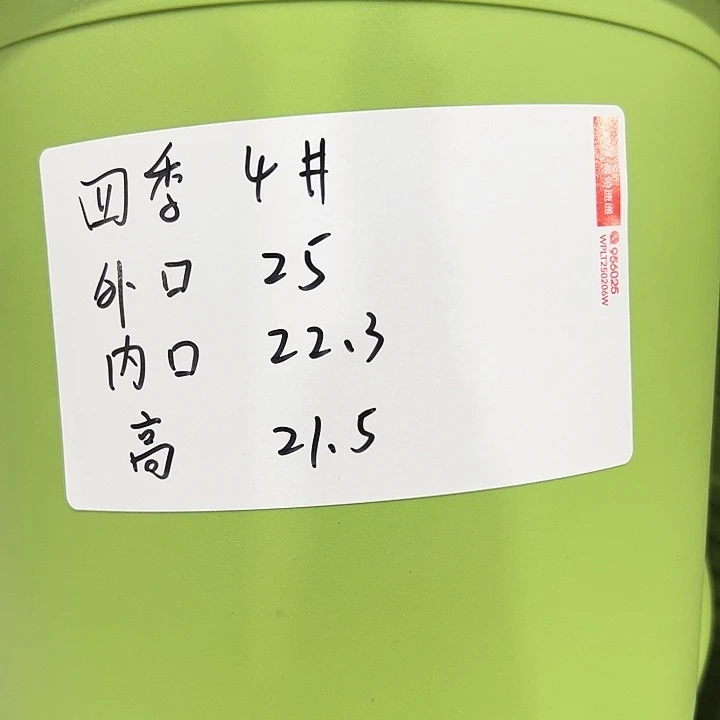 四季 4#
外口 25
内口 22.3
高 21.5
956025
WPLT250206W